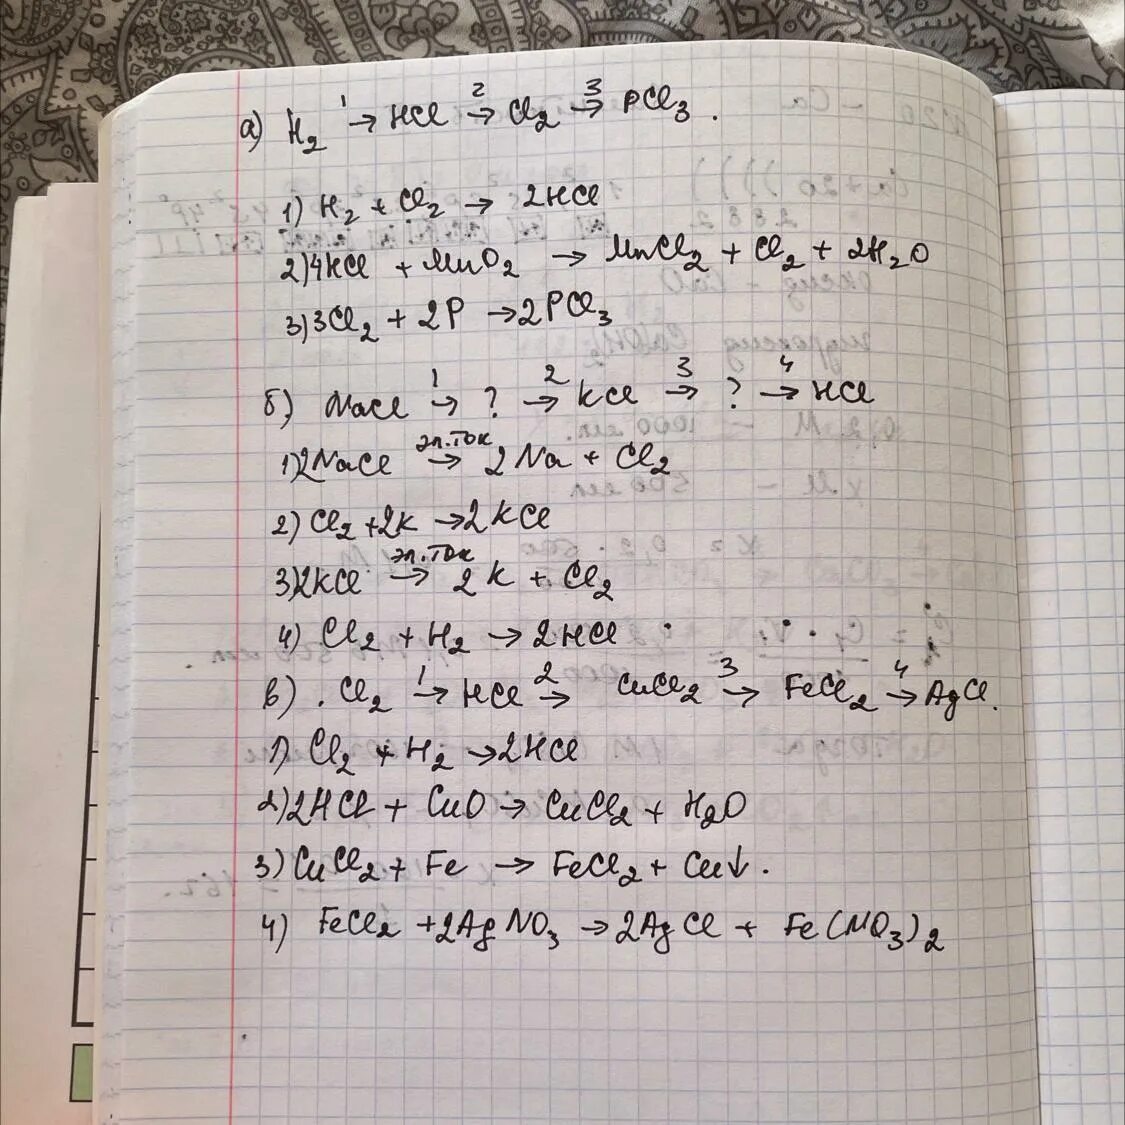 а) H₂ →¹ HCl →² Cl₂ →³ PCl₃.
1) H₂ + Cl₂ → 2HCl
2) 4HCl + MnO₂ → MnCl₂ + Cl₂ + 2H₂O
3) 3Cl₂ + 2P → 2PCl₃
б) NaCl →¹ ? →² KCl →³ ? →⁴ HCl
1) 2NaCl эл.ток → 2Na + Cl₂
2) Cl₂ + 2K → 2KCl
3) 2KCl эл.ток → 2K + Cl₂
4) Cl₂ + H₂ → 2HCl
в) . Cl₂ →¹ HCl →² CuCl₂ →³ FeCl₂ →⁴ AgCl.
1) Cl₂ + H₂ → 2HCl
2) 2HCl + CuO → CuCl₂ + H₂O
3) CuCl₂ + Fe → FeCl₂ + Cu↓.
4) FeCl₂ + 2AgNO₃ → 2AgCl + Fe(NO₃)₂